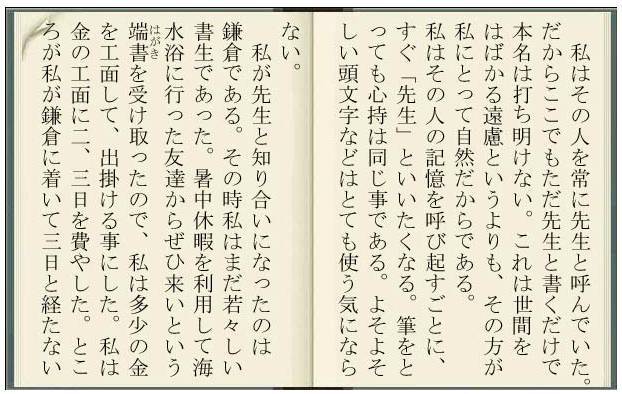 私はその人を常に先生と呼んでいた。
だからここでもただ先生と書くだけで
本名は打ち明けない。これは世間を
はばかる遠慮というよりも、その方が
私にとって自然だからである。
私はその人の記憶を呼び起すごとに、
すぐ「先生」といいたくなる。筆をと
っても心持は同じ事である。よそよそ
しい頭文字などはとても使う気になら
ない。
私が先生と知り合いになったのは
鎌倉である。その時私はまだ若々しい
書生であった。暑中休暇を利用して海
水浴に行った友達からぜひ来いという
端書を受け取ったので、私は多少の金
はがき
を工面して、出掛ける事にした。私は
金の工面に二、三日を費やした。とこ
ろが私が鎌倉に着いて三日と経たない